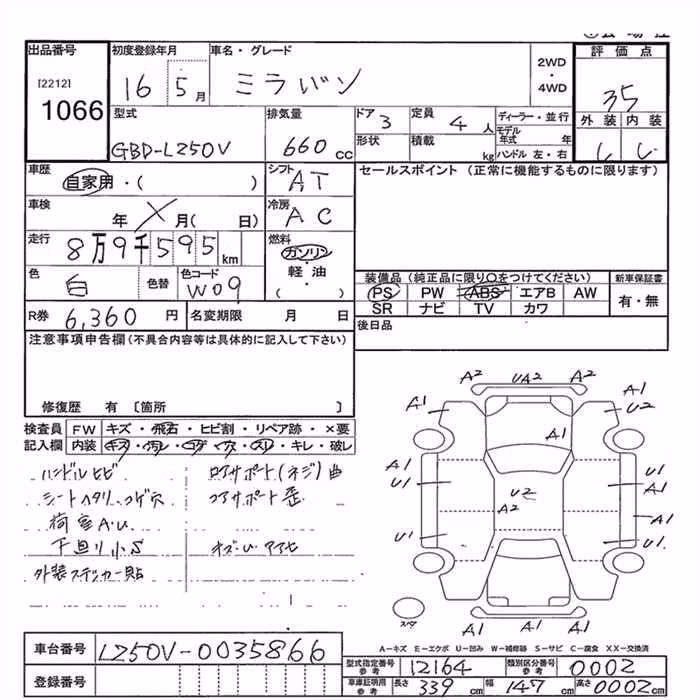 出品番号 初度登録年月 車名・グレード 2WD・4WD 評価点
[2212] 1066 16 5月 ミラバン 35
型式 排気量 ドア 3 定員 4人 ディーラー・並行 外装 内装
GBD-L250V 660cc 形状 積載 kg モデル年式 年 ハンドル 左・右
車歴 シフト セールスポイント (正常に機能するものに限ります)
自家用・( ) AT
車検 冷房
年 月( 日) AC
走行 燃料
8万9千595km ガソリン
色 白 色替 色コード W09 軽油 ( )
装備品 (純正品に限り○をつけてください) 新車保証書
PS PW ABS エアB AW 有・無
SR ナビ TV カワ
R券 6,360円 名変期限 月 日 後日品
注意事項申告欄(不具合内容等は具体的に記入して下さい)
修復歴 有 〔箇所 〕
検査員 FW キズ・飛石・ヒビ割・リペア跡・×要
記入欄 内装 キズ・汚レ・コゲ・穴・スレ・キレ・破レ
ハンドルヒビ ロアサポート(ネジ)曲
シートヘタリ、コゲ穴 コアサポート歪
荷室A.U
下廻り小S
外装ステッカー貼
A2 UA2 A2
A1 A1
U2
A1
A1 U1
U1 U1
U2
A2 A1
U1 U1
スペア
A1 A1 A1
A-キズ E-エクボ U-凹み W-補修跡 S-サビ C-腐食 XX-交換済
車台番号 L250V-0035866
登録番号
型式指定番号 参考 12164 類別区分番号 参考 0002
車庫証明用 参考 長さ 339cm 幅 147cm 高さ 0002cm